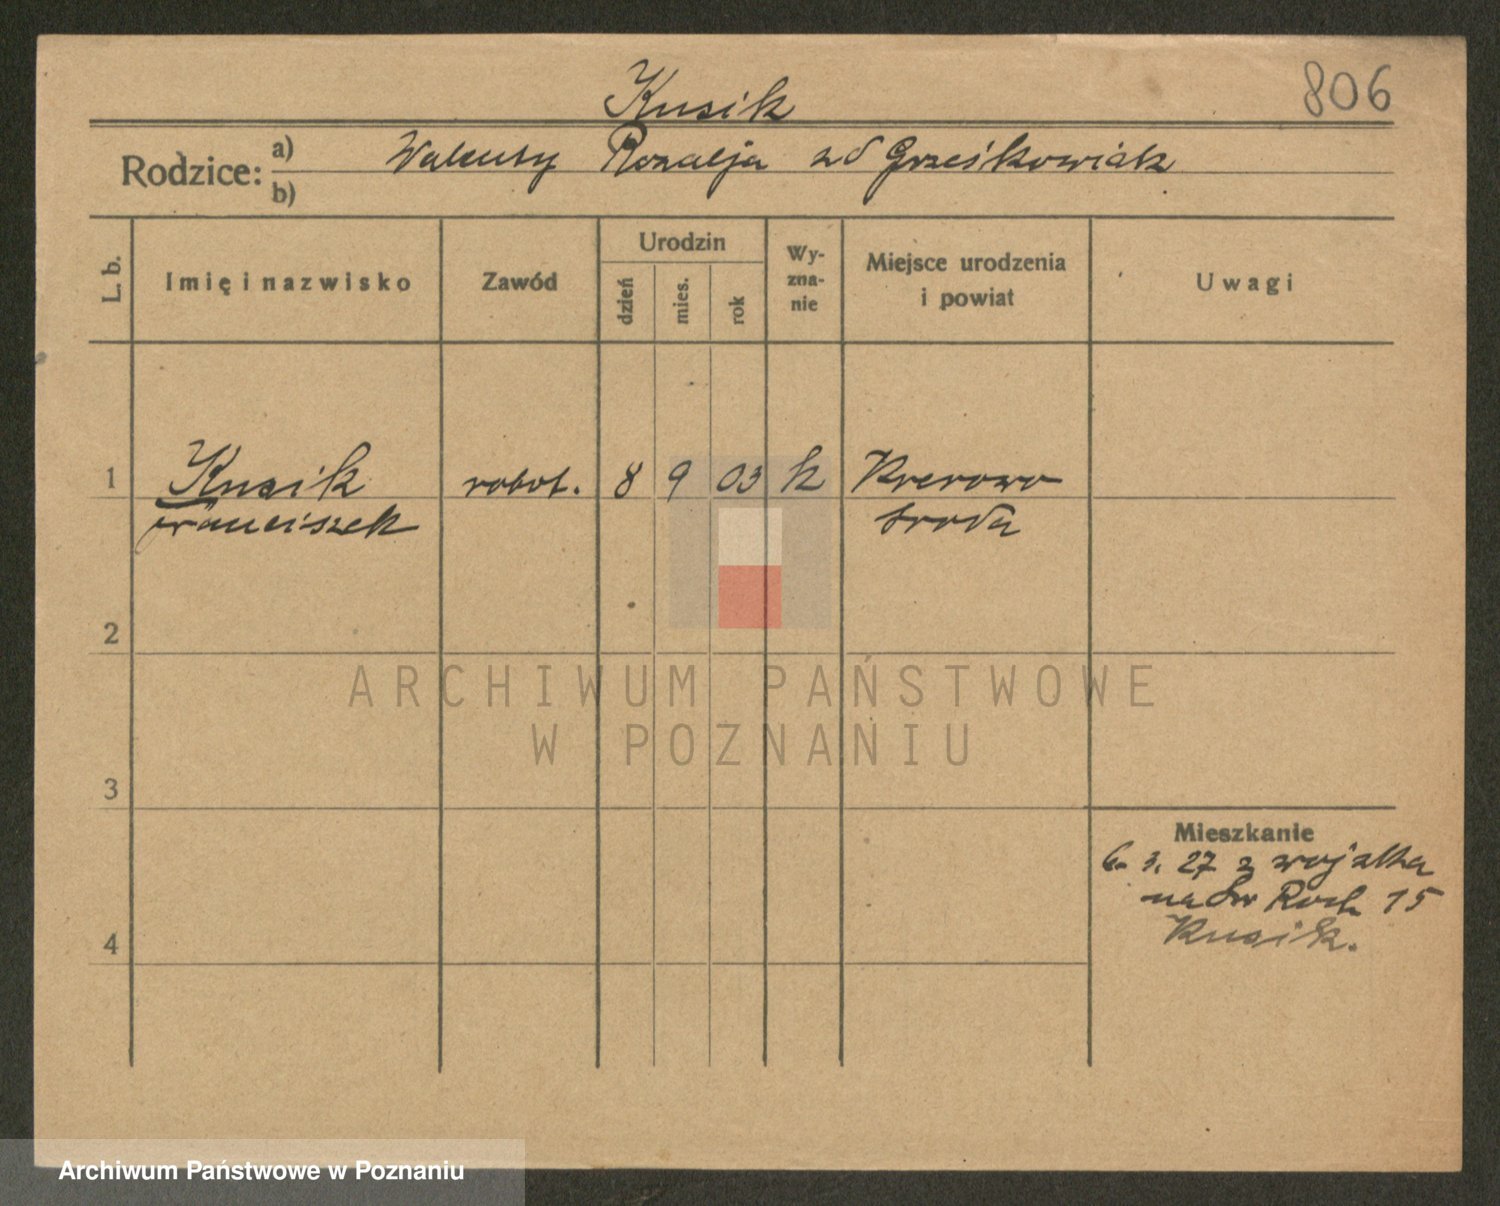 806
Kusik
Rodzice: a) Walenty Rozalja zd Grześkowiak
b)
L. b.
Imię i nazwisko
Zawód
Urodzin
dzień
mies.
rok
Wy-
zna-
nie
Miejsce urodzenia
i powiat
Uwagi
1 Kusik robot. 8 9 03 k Krerowo
Franciszek Środa
2
3
4
Mieszkanie
6. 3. 27 z
na Św Roch 15
Kusik.
ARCHIWUM PAŃSTWOWE
W POZNANIU
Archiwum Państwowe w Poznaniu